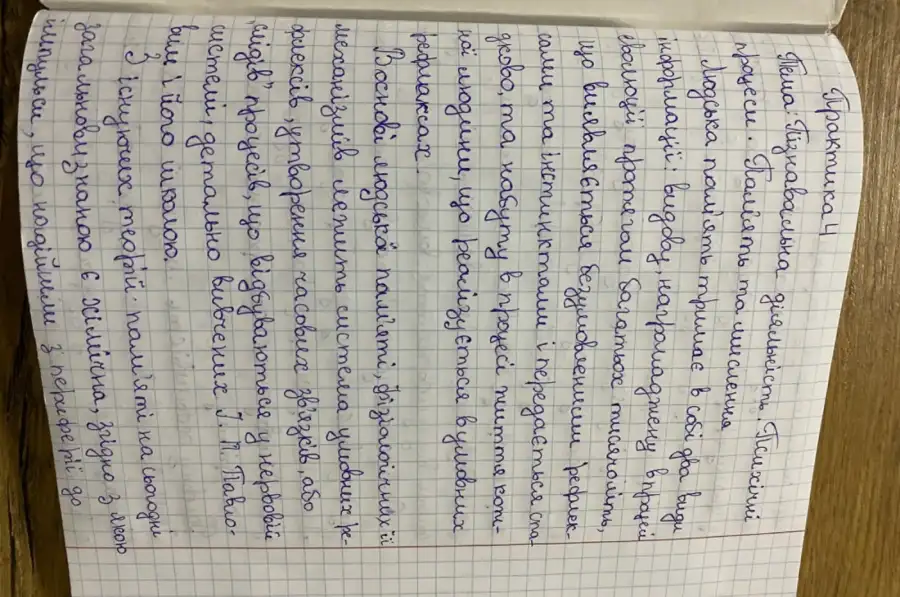 Практика 4
Тема: Пізнавальна діяльність. Психічні
процеси. Пам'ять та мислення
Людська пам'ять тримає в собі два види
інформації: видову, нагромаджену в процесі
еволюції протягом багатьох тисячоліть,
що виявляється безумовленими рефлек-
сами та інстинктами і передається спа-
дково, та набуту в процесі життя кож-
ної людини, що реалізується в умовних
рефлексах.
В основі людської пам'яті, фізіологічних її
механізмів лежить система умовних ре-
флексів, утворення часових зв'язків, або
"слідів" процесів, що відбуваються у нервовій
системі, детально вивчених І. П. Павло-
вим і його школою.
З існуючих теорій пам'яті на сьогодні
загальновизнаною є хімічна, згідно з якою
імпульси, що надійшли з периферії до